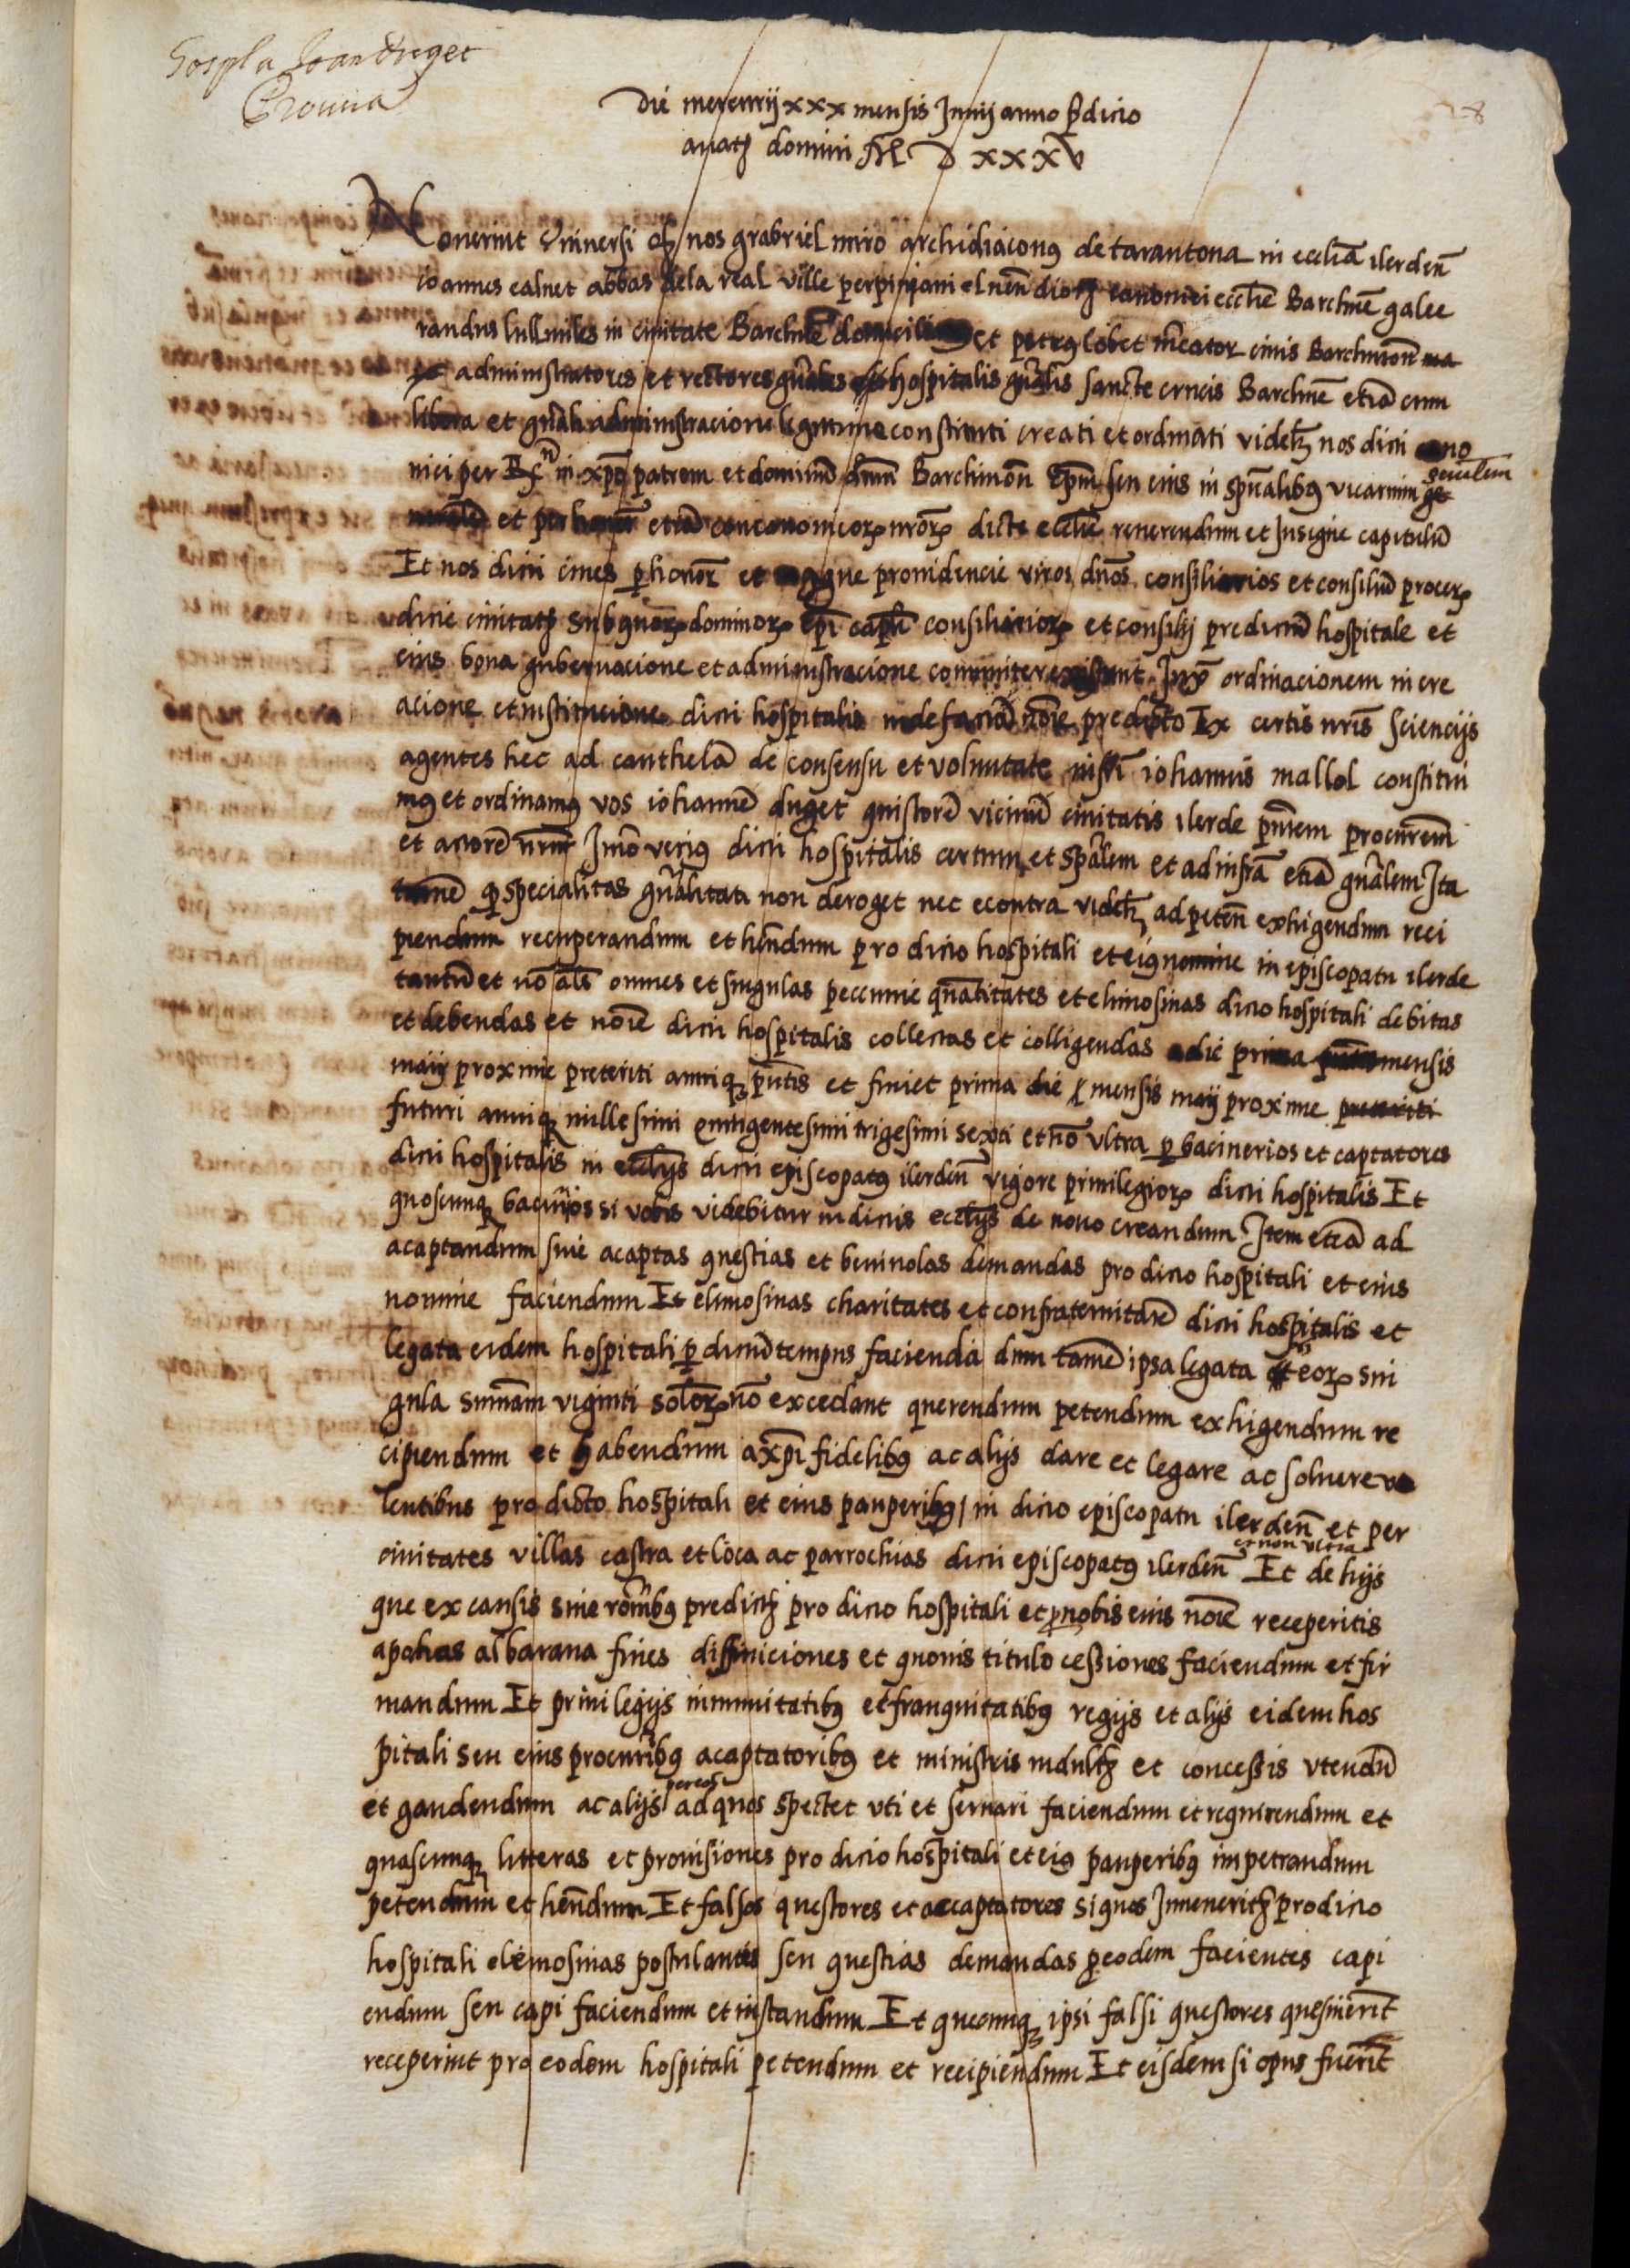 Hospl a Joan duget
Procura
28
Die mercurij xxx mensis Junij anno predicto
a natz domini M D xxxv
Nouerint Vniuersi qz nos grabriel miro archidiaconus de tarantona in ecclia ilerden
ioannes caluet abbas dela real ville perpiniani elnen dioz canonici ecclie Barchne galce
randus lull miles in ciuitate Barchne domicili et petrus lobet mcator ciuis Barchinon
administratores et rectores gnales hospitalis gnalis sancte crucis Barchne etia cum
libera et gnali administracione legittime constituti creati et ordinati videlz nos dicti cano
nici per R in xpo patrem et dominu dnm Barchinon Epm seu eius in spualibus vicarium ge
generalem
et per honor etia conconomicor nror dicte ecclie reuerendum et Insigne capitulu
Et nos dicti ciues p honor et magne prouidencie viros dnos consiliarios et consiliu procer
dicte ciuitatz sub quor dominor Epi capli consiliarior et consilij predictu hospitale et
eius bona gubernacione et administracione comuniter existunt Juxa ordinacionem in cre
acione et institucione dicti hospitalis inde facta noie predicto Ex certis nris sciencijs
agentes hec ad cauthela de consensu et voluntate iohannis mallol constitui
mus et ordinamus vos iohanne duget quistore vicinu ciuitatis ilerde pntem procurem
et actore nrm Jmo verius dicti hospitalis certum et spalem et ad infra etia gnalem Ita
tame q specialitas gnalitati non deroget nec econtra videlz ad peten exhigendum reci
piendum recuperandum et hendum pro dicto hospitali et eius nomine in episcopatu ilerde
tantu et no als omnes et singulas peccunie quantitates et elimosinas dicto hospitali debitas
et debendas et noie dicti hospitalis collectas et colligendas a die prima mensis
maij proxime preteriti anniqz pntis et finiet prima die mensis maij proxime preteriti
futuri anniqz millesimi quingentesimi trigesimi sexti et no vltra p bacinerios et captatores
dicti hospitalis in ecclijs dicti episcopatus ilerden vigore priuilegior dicti hospitalis Et
quoscunqz bacinios si vobis videbitur in dictis ecclijs de nouo creandum Item etia ad
acaptandum siue acaptas questias et beniuolas demandas pro dicto hospitali et eius
nomine faciendum Et elimosinas charitates et confraternitare dicti hospitalis et
legata eidem hospitali p dictu tempus facienda dum tame ipsa legata et eor sin
gula summam viginti solor no excedant querendum petendum exhigendum re
cipiendum et habendum a xpi fidelibus ac alijs dare et legare ac soluere vo
lentibus pro dicto hospitali et eius pauperibus / in dicto episcopatu ilerden et per
et non vltra
ciuitates villas castra et loca ac parrochias dicti episcopatus ilerden Et de hijs
que ex causis siue ronibus predictz pro dicto hospitali et p nobis eius noie receperitis
apohas albarana fines diffiniciones et quouis titulo cessiones faciendum et fir
mandum Et priuilegijs inmunitatibus et franquitatibus regijs et alijs eidem hos
pitali seu eius procuribus acaptatoribus et ministris indultz et concessis vtendu
per eos
et gaudendum ac alijs ad quos spectet vti et seruari faciendum et requirendum et
quascunqz litteras et prouisiones pro dicto hospitali et eius pauperibus impetrandum
petendum et hendum Et falsos questores et accaptatores si quos Jnueneritz pro dicto
hospitali elemosinas postulantes seu questias demandas p eodem facientes capi
endum seu capi faciendum et instandum Et quecunqz ipsi falsi questores quesiuerit
receperint pro eodem hospitali petendum et recipiendum Et eisdem si opus fuerit